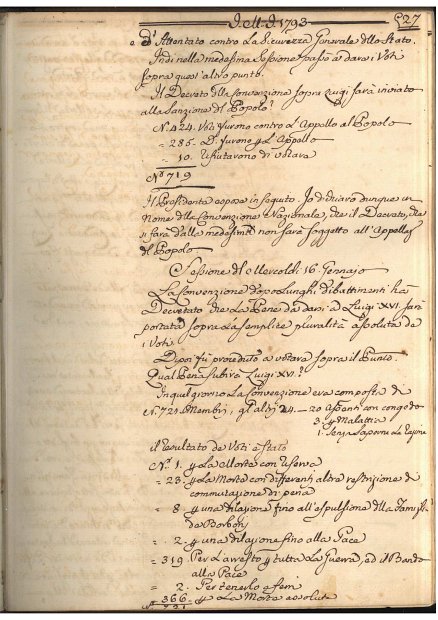 J. M. J. 1793
627
e d'Attentato contro La Sicurezza Generale dello Stato.
Indi nella medesima Sessione passò a darsi i Voti
sopra quest'altro punto.
Il Decreto della Convenzione sopra Luigi sarà inviato
alla Sanzione del Popolo?
N. 424. Voti furono contro L'Appello al Popolo
= 285. Dº furono p L'Appello
= 10. Rifiutarono di votare
Nº 719
Il Presidente espose in seguito. Io dichiaro dunque in
Nome della Convenzione Nazionale, che il Decreto, che
si farà dalla medesima non sarà soggetto all'Appello
del Popolo
Sessione del Mercoldì 16. Gennaro
La Convenzione dopo Lunghi dibattimenti ha
Decretato che La Pena da darsi a Luigi XVI. sarà
portata sopra La semplice pluralità assoluta de
i Voti.
Dipoi fù proceduto a votare sopra il Punto.
Qual Pena subirà Luigi XVI.?
In quel giorno La Convenzione era composta di
N. 721. Membri, gl'altri 24. — 20 Assenti con congedo
3. p Malattia
1. Senza Sapersene La Cagione
Il resultato de Voti è stato
Nº 1. p La Morte con riserva
= 23. p La Morte con differenti altre restrizione di
commutazione di pena
= 8. p una dilazione fino all'espulsione della Famiglia
de Borboni
= 2. p una dilazione fino alla Pace
= 319. Per L'arresto p tutta La Guerra, ed il Bando
alla Pace
= 2. Per tenerlo a ferri
= 366 = p La Morte assoluta
Nº 721